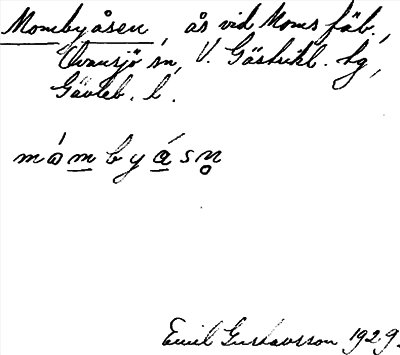 Mombyåsen, ås vid Moms fäb.,
Ovansjö sn, V. Gästrikl. tg,
Gävleb. l.
mòmbyásn̥
Emil Gustavsson 1929.